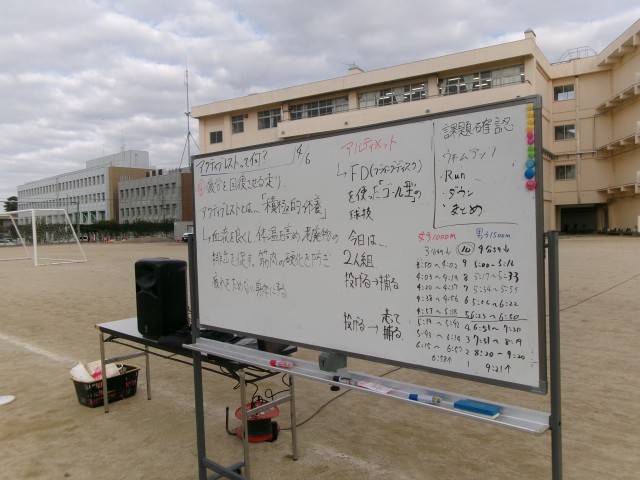 アクティブレストって何? 4/6
自分を回復させる走り
アクティブレストとは、「積極的休養」
↳血流を良くし、体温を高め、老廃物の
排出を促す、筋肉の硬化を防ぎ
疲れをためない身体になる
アルティメット
↳FD(フライングディスク)
を使った「ゴール型」の
球技
今日は、
2人組
投げる→捕る
投げる→走って捕る
課題確認
・ウォームアップ
・Run
・ダウン
・まとめ
女子1000m 男子1500m
10
3:50~4:02 9 5:00~5:16
4:03~4:19 8 5:17~5:33
4:20~4:37 7 5:34~5:55
4:38~4:56 6 5:56~6:22
4:57~5:18 5 6:23~6:50
5:19~5:42 4 6:51~7:30
5:43~6:14 3 7:31~8:19
6:15~6:57 2 8:20~9:20
6:58↑ 1 9:21↑